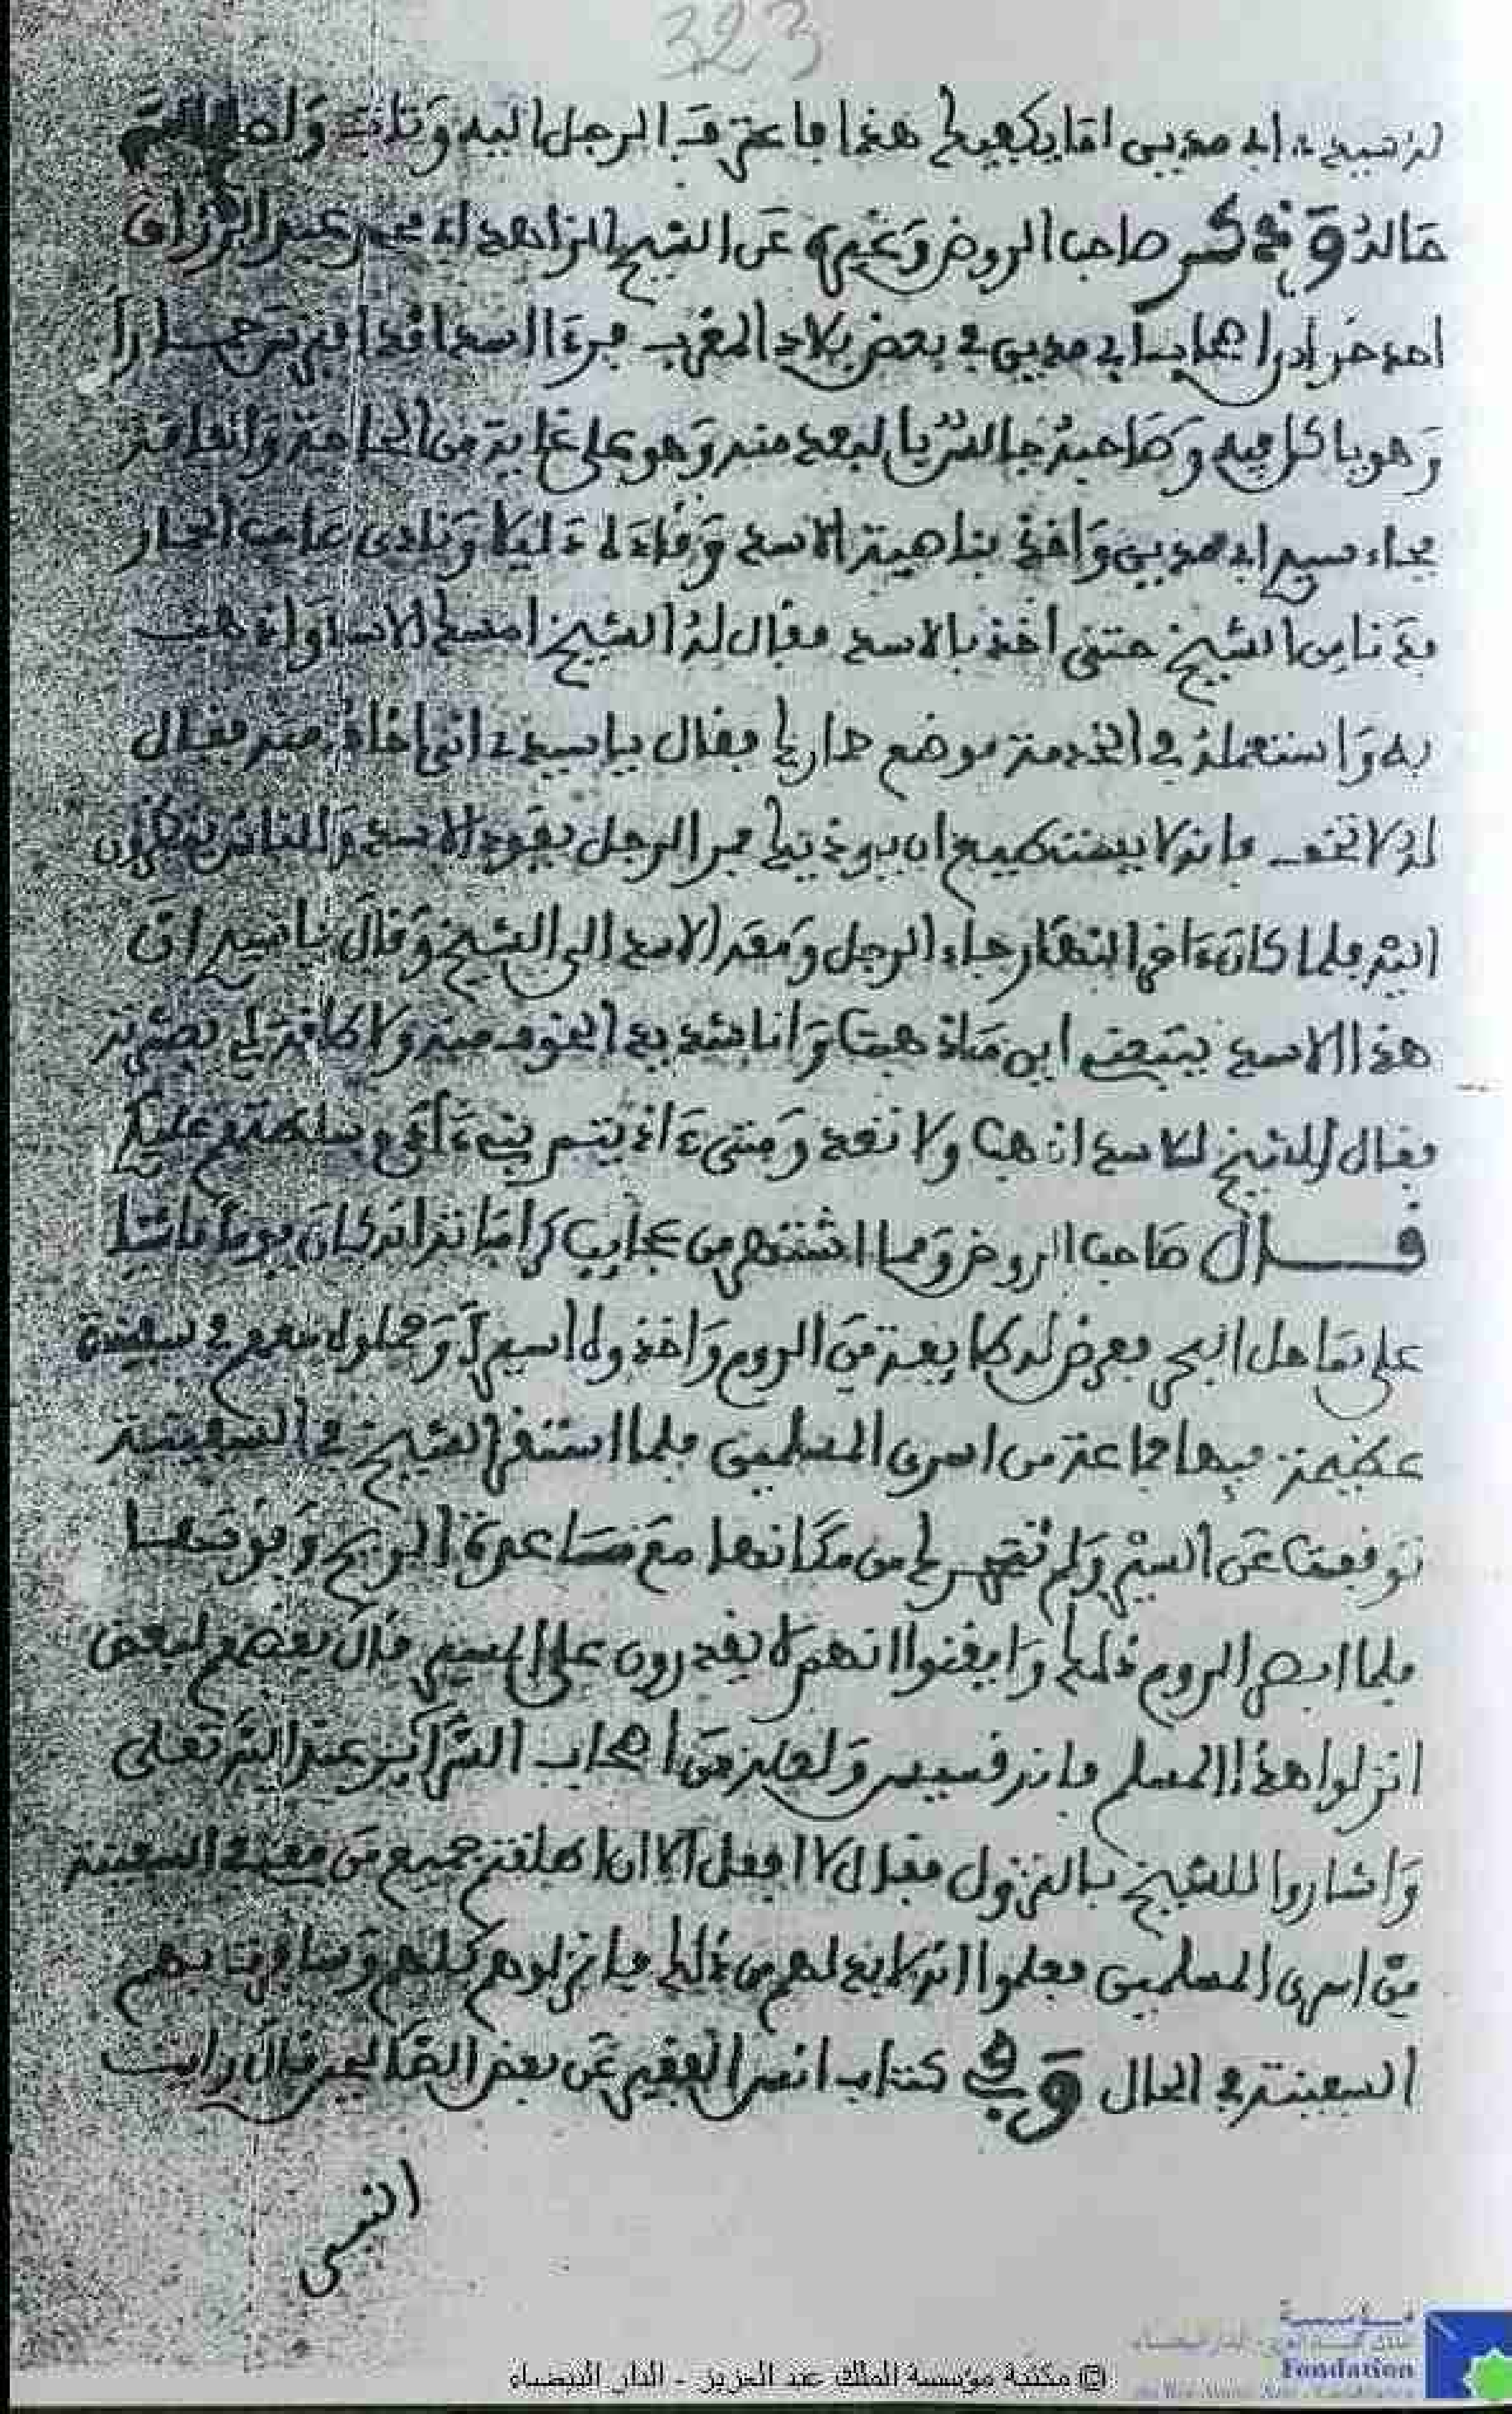 323
له سيدي ابو مدين اما يكفيك هذا فاعترف الرجل اليه وتاب
حاله وذكر صاحب الروض وغيره عن الشيخ الزاهد ابي محمد عبد الرزاق
احد خواص اصحاب ابي مدين في بعض بلاد المغرب فرءا اسدا قد افترس حمارا
وهو ياكل فيه وصاحبه جالس بالبعد منه وهو على غاية من الحاجة والفاقة
فجاء سيدي ابو مدين واخذ بناصية الاسد وقاده ذليلا ونادى صاحب الحمار
فدنا من الشيخ حتى اخذ بالاسد فقال له الشيخ امسك الاسد واذهب
به واستعمله في الخدمة موضع حمارك فقال يا سيدي اني اخاف منه فقال
له لا تخف فانه لا يستطيع ان يوذيك فمر الرجل يقود الاسد والناس ينظرون
اليه فلما كان ءاخر النهار جاء الرجل ومعه الاسد الى الشيخ وقال يا سيدي ان
هذا الاسد يتبعني اين ما ذهبت وانا شديد الخوف منه ولا طاقة لي بعشرته
فقال الشيخ للاسد اذهب ولا تعد ومتى ءاذيتم بني ءادم سلطتهم عليكم
قال صاحب الروض ومما اشتهر من عجايب كراماته انه كان يوما ماشيا
على ساحل البحر فعرض له طايفة من الروم واخذوه اسيرا وجعلوه معهم في سفينة
عظيمة فيها جماعة من اسرى المسلمين فلما استقر الشيخ في السفينة
توقفت عن السير ولم تتحرك من مكانها مع مساعدة الريح وقوتها
فلما ابصر الروم ذلك وايقنوا انهم لا يقدرون على السير قال بعضهم لبعض
انزلوا هذا المسلم فانه قسيس ولعله من اصحاب السراير عند الله تعلى
واشاروا للشيخ بالنزول فقال لا افعل الا ان اطلقتم جميع من في السفينة
من اسرى المسلمين فعلموا انه لا بد لهم من ذلك فانزلوهم كلهم وسارت بهم
السفينة في الحال وفي كتاب انس الفقير عن بعض الصالحين قال رايت
النبي
© مكتبة مؤسسة الملك عبد العزيز - الدار البيضاء
Fondation